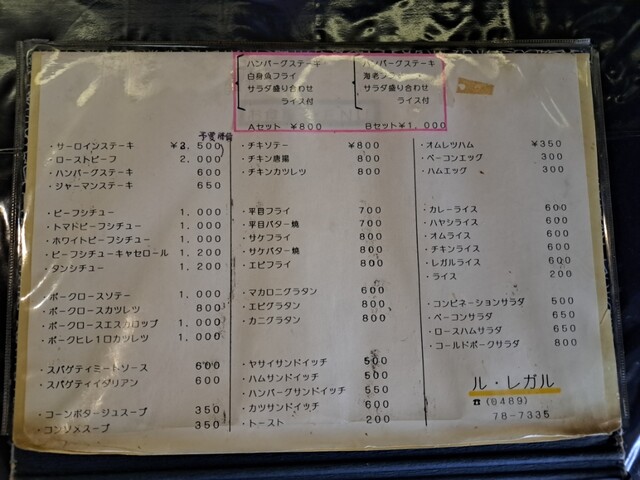 ハンバーグステーキ
白身魚フライ
サラダ盛り合わせ
ライス付
Aセット ¥800
ハンバーグステーキ
海老フライ
サラダ盛り合わせ
ライス付
Bセット ¥1,000
予憂価合
・サーロインステーキ ¥3,500
・ローストビーフ 2,000
・ハンバーグステーキ 600
・ジャーマンステーキ 650
・ビーフシチュー 1,000
・トマドビーフシチュー 1,000
・ホワイトビーフシチュー 1,000
・ビーフシチューキャセロール 1,200
・タンシチュー 1,200
・ポークロースソテー 1,000
・ポークロースカツレツ 800
・ポークロースエスカロップ 1,000
・ポークヒレ1口カツレツ 1,000
・スパゲティミートソース 600
・スパゲティイタリアン 600
・コーンポタージュスープ 350
・コンソメスープ 350
・チキソテー ¥800
・チキン唐揚 800
・チキンカツレツ 800
・平目フライ 700
・平目バター焼 700
・サケフライ 800
・サケバター焼 800
・エビフライ 800
・マカロニグラタン 600
・エビグラタン 800
・カニグラタン 800
・ヤサイサンドイッチ 500
・ハムサンドイッチ 500
・ハンバーグサンドイッチ 550
・カツサンドイッチ 600
・トースト 200
・オムレツハム ¥350
・ベーコンエッグ 300
・ハムエッグ 300
・カレーライス 600
・ハヤシライス 600
・オムライス 600
・チキンライス 600
・レガルライス 600
・ライス 200
・コンビネーションサラダ 500
・ベーコンサラダ 650
・ロースハムサラダ 650
・コールドポークサラダ 800
ル・レガル
☎(0489)
78-7335